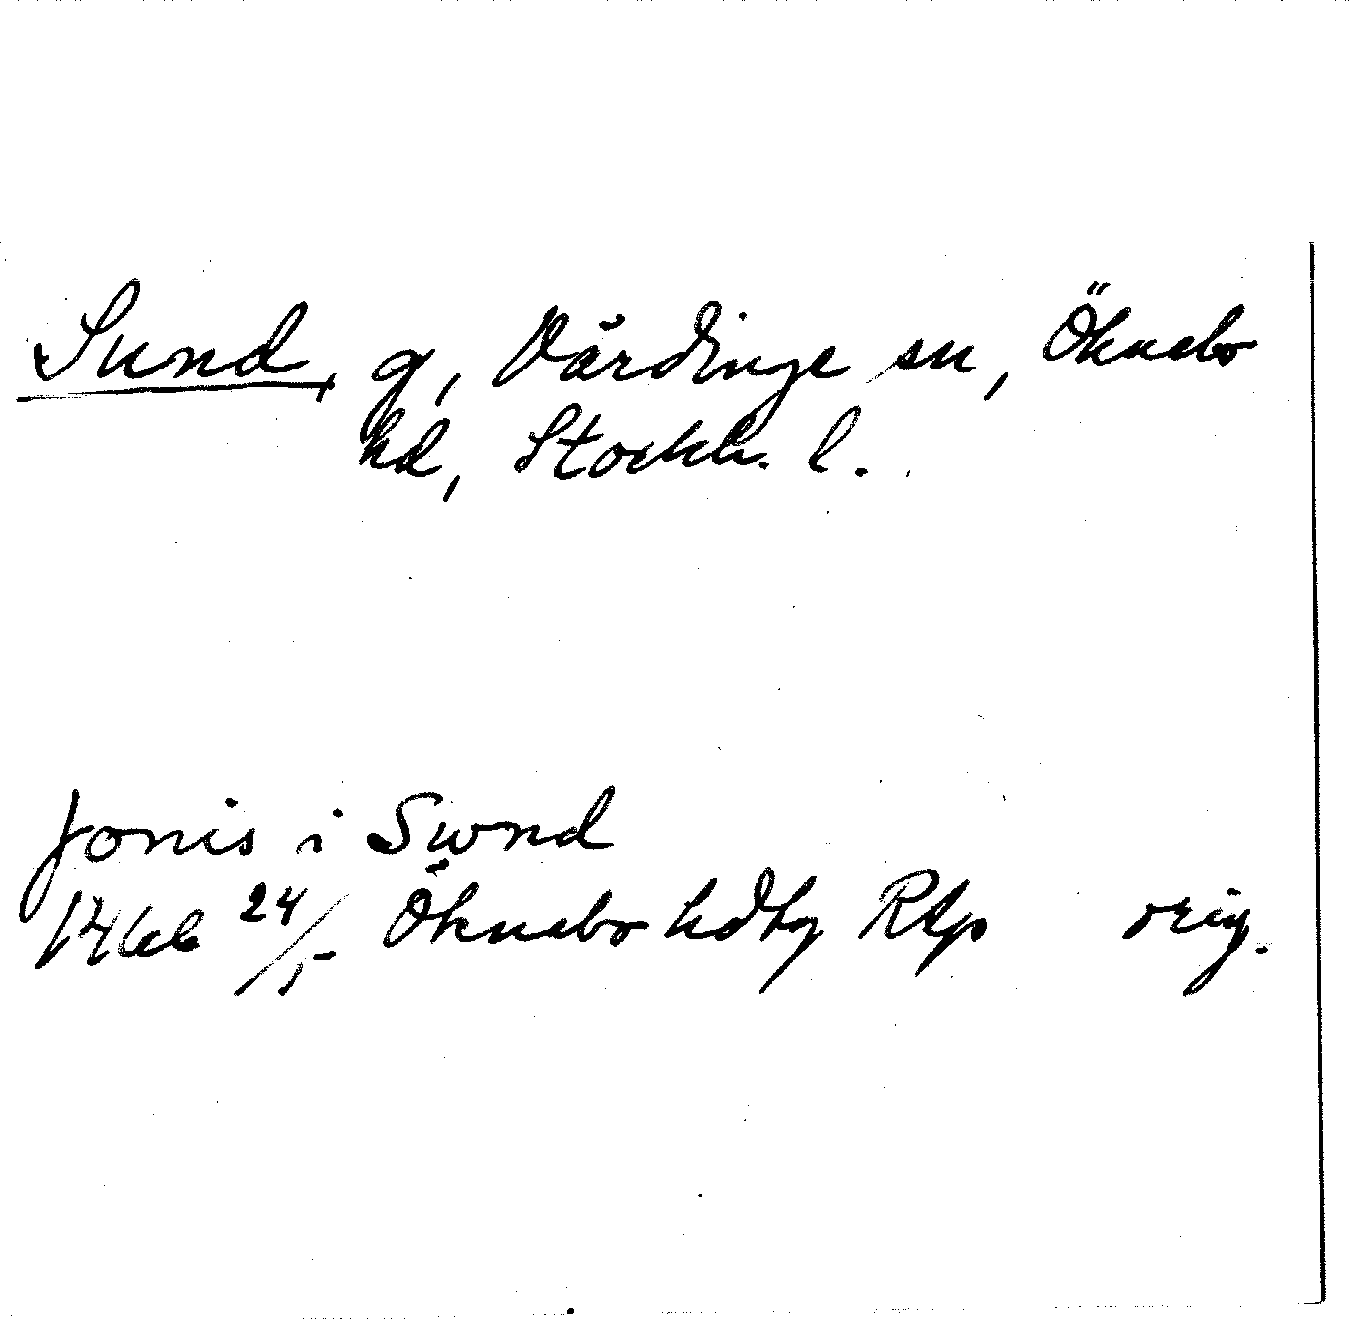 Sund, g, Vårdinge sn, Öknebo
hd, Stockh. l.
Jonis i Swnd
1466 24/5 Öknebo hdtg RAp orig.